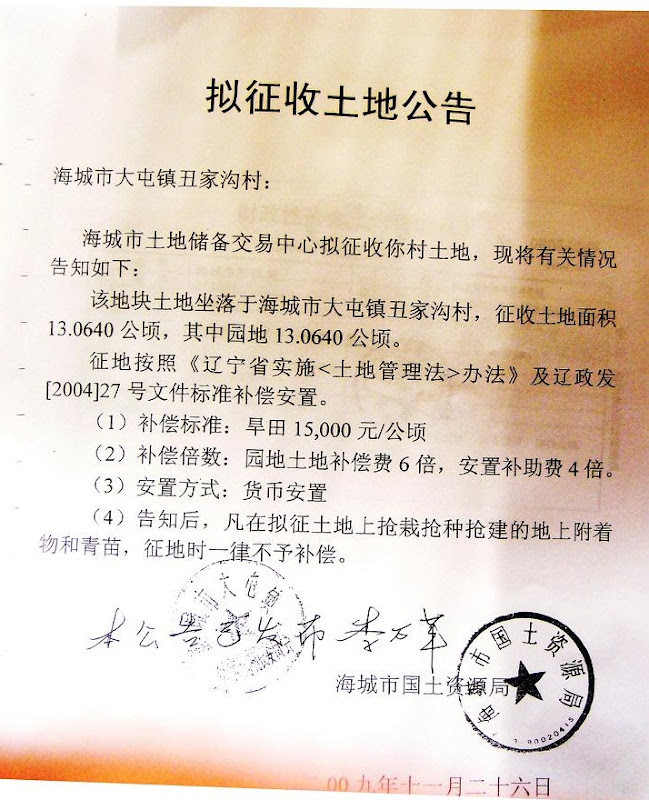 拟征收土地公告
海城市大屯镇丑家沟村：
海城市土地储备交易中心拟征收你村土地，现将有关情况
告知如下：
该地块土地坐落于海城市大屯镇丑家沟村，征收土地面积
13.0640 公顷，其中园地 13.0640 公顷。
征地按照《辽宁省实施<土地管理法>办法》及辽政发
[2004]27 号文件标准补偿安置。
（1）补偿标准：旱田 15,000 元/公顷
（2）补偿倍数：园地土地补偿费 6 倍，安置补助费 4 倍。
（3）安置方式：货币安置
（4）告知后，凡在拟征土地上抢栽抢种抢建的地上附着
物和青苗，征地时一律不予补偿。
城市大屯镇
本公告已发布 李万革
海城市国土资源局
海城市国土资源局
00九年十一月二十六日